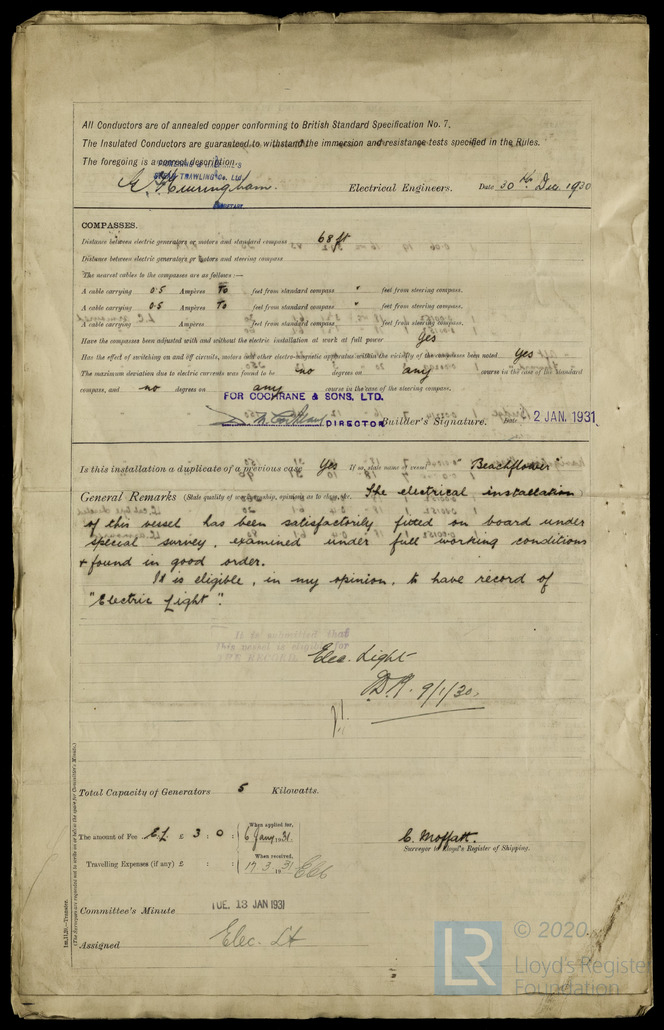 All Conductors are of annealed copper conforming to British Standard Specification No. 7.
The Insulated Conductors are guaranteed to withstand the immersion and resistance tests specified in the Rules.
The foregoing is a correct description.
STEAM TRAWLING Co. Ltd
Electrical Engineers. Date 30th Dec 1930
COMPASSES.
Distance between electric generators or motors and standard compass 68 ft
Distance between electric generators or motors and steering compass
The nearest cables to the compasses are as follows :—
A cable carrying 0.5 Ampères To feet from standard compass " feet from steering compass.
A cable carrying 0.5 Ampères To feet from standard compass " feet from steering compass.
A cable carrying Ampères feet from standard compass feet from steering compass.
Have the compasses been adjusted with and without the electric installation at work at full power Yes
Has the effect of switching on and off circuits, motors and other electro-magnetic apparatus within the vicinity of the compasses been noted Yes
The maximum deviation due to electric currents was found to be no degrees on any course in the case of the standard
compass, and no degrees on any course in the case of the steering compass.
FOR COCHRANE & SONS, LTD.
DIRECTOR Builder's Signature. Date 2 JAN. 1931
Is this installation a duplicate of a previous case Yes If so, state name of vessel "Beachflower"
General Remarks (State quality of workmanship, opinions as to class, etc. The electrical installation
of this vessel has been satisfactorily fitted on board under
special survey, examined under full working conditions
+ found in good order.
It is eligible, in my opinion, to have record of
"Electric Light".
It is submitted that
this vessel is eligible for
THE RECORD. Elec. Light
9/1/30.
Total Capacity of Generators 5 Kilowatts.
The amount of Fee £ 3 : 0 : When applied for, 6 Jany 1931.
Travelling Expenses (if any) £ : : When received, 17.3.1931
C. Moffatt.
Surveyor to Lloyd's Register of Shipping.
Committee's Minute TUE. 13 JAN 1931
Assigned Elec. Lt
1m.11.29.—Transfer.
(The Surveyors are requested not to write on or below the space for Committee's Minute.)
LR
© 2020
Lloyd's Register
Foundation